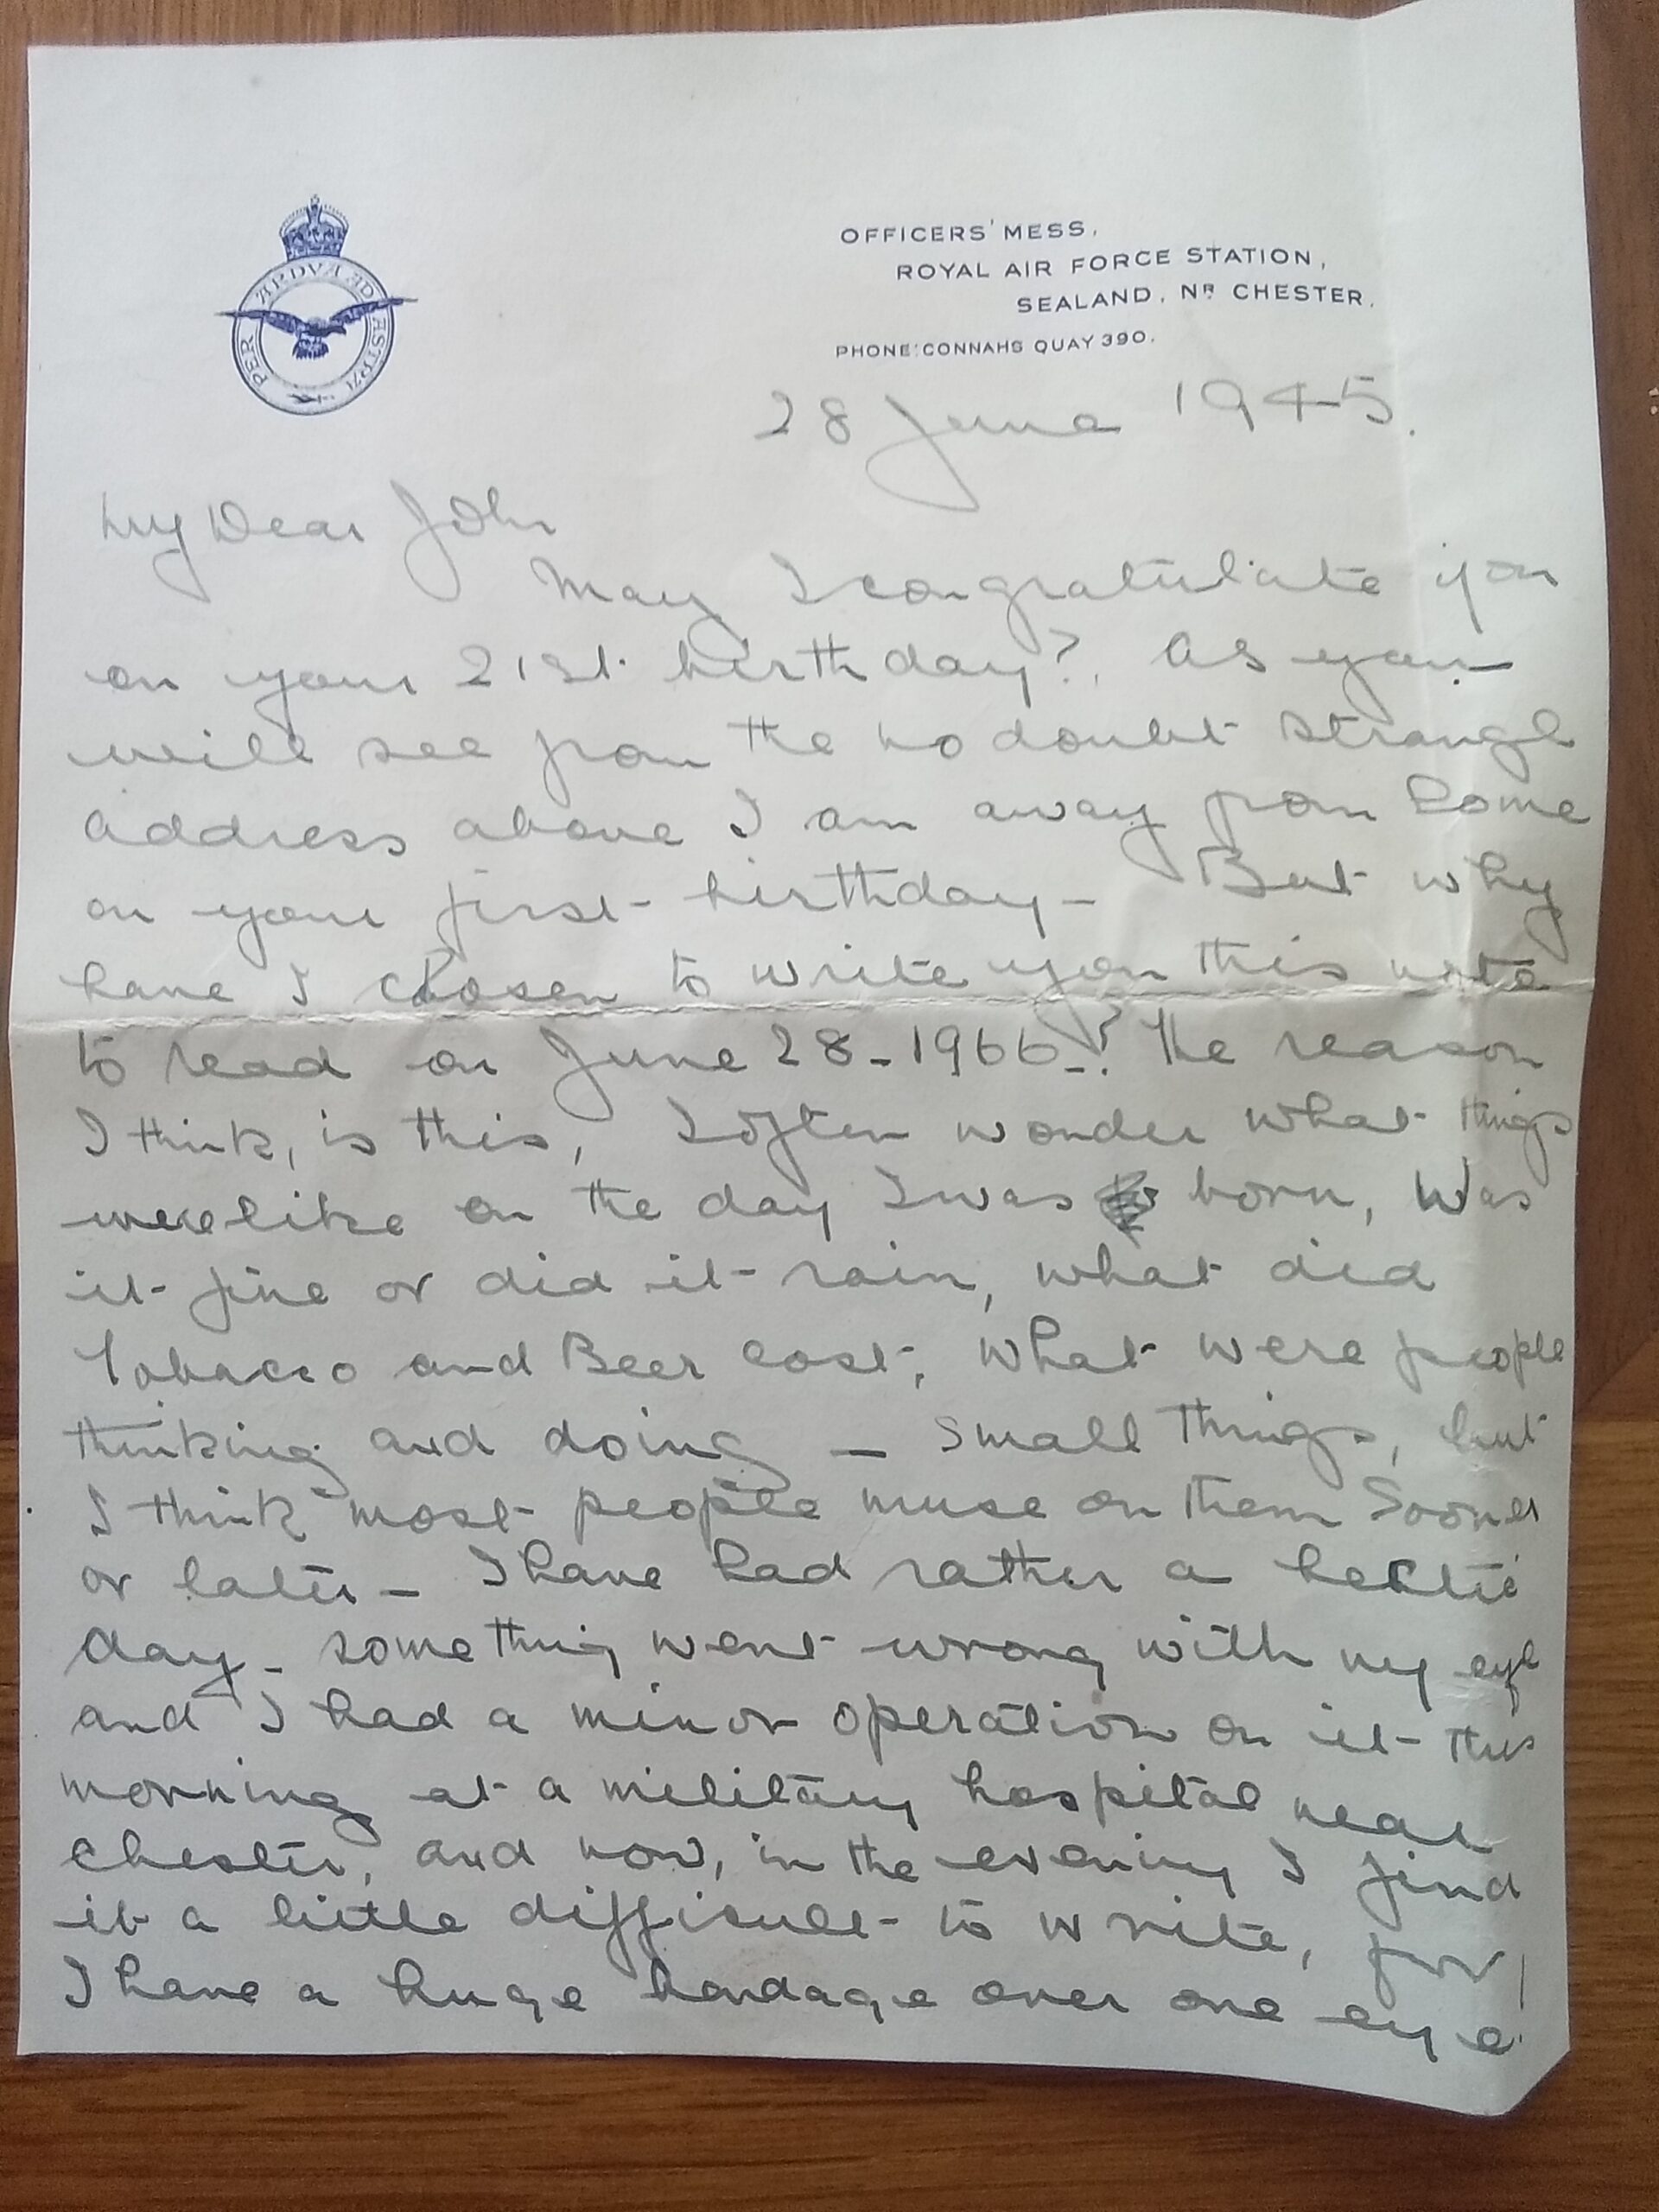 PER ARDVA AD ASTRA
OFFICERS' MESS,
ROYAL AIR FORCE STATION,
SEALAND, NR CHESTER.
PHONE: CONNAHS QUAY 390.
28 June 1945.
My Dear John
May I congratulate you
on your 21st birthday?. As you
will see from the no doubt strange
address above I am away from home
on your first birthday - But why
have I chosen to write you this note
to read on June 28 - 1966 -? The reason
I think, is this, I often wonder what things
were like on the day I was born, Was
it fine or did it rain, what did
Tobacco and Beer cost, what were people
thinking and doing - small things, but
I think most people muse on them sooner
or later - I have had rather a hectic
day - something went wrong with my eye
and I had a minor operation on it this
morning at a military hospital near
Chester, and now, in the evening I find
it a little difficult to write, for
I have a huge bandage over one eye.